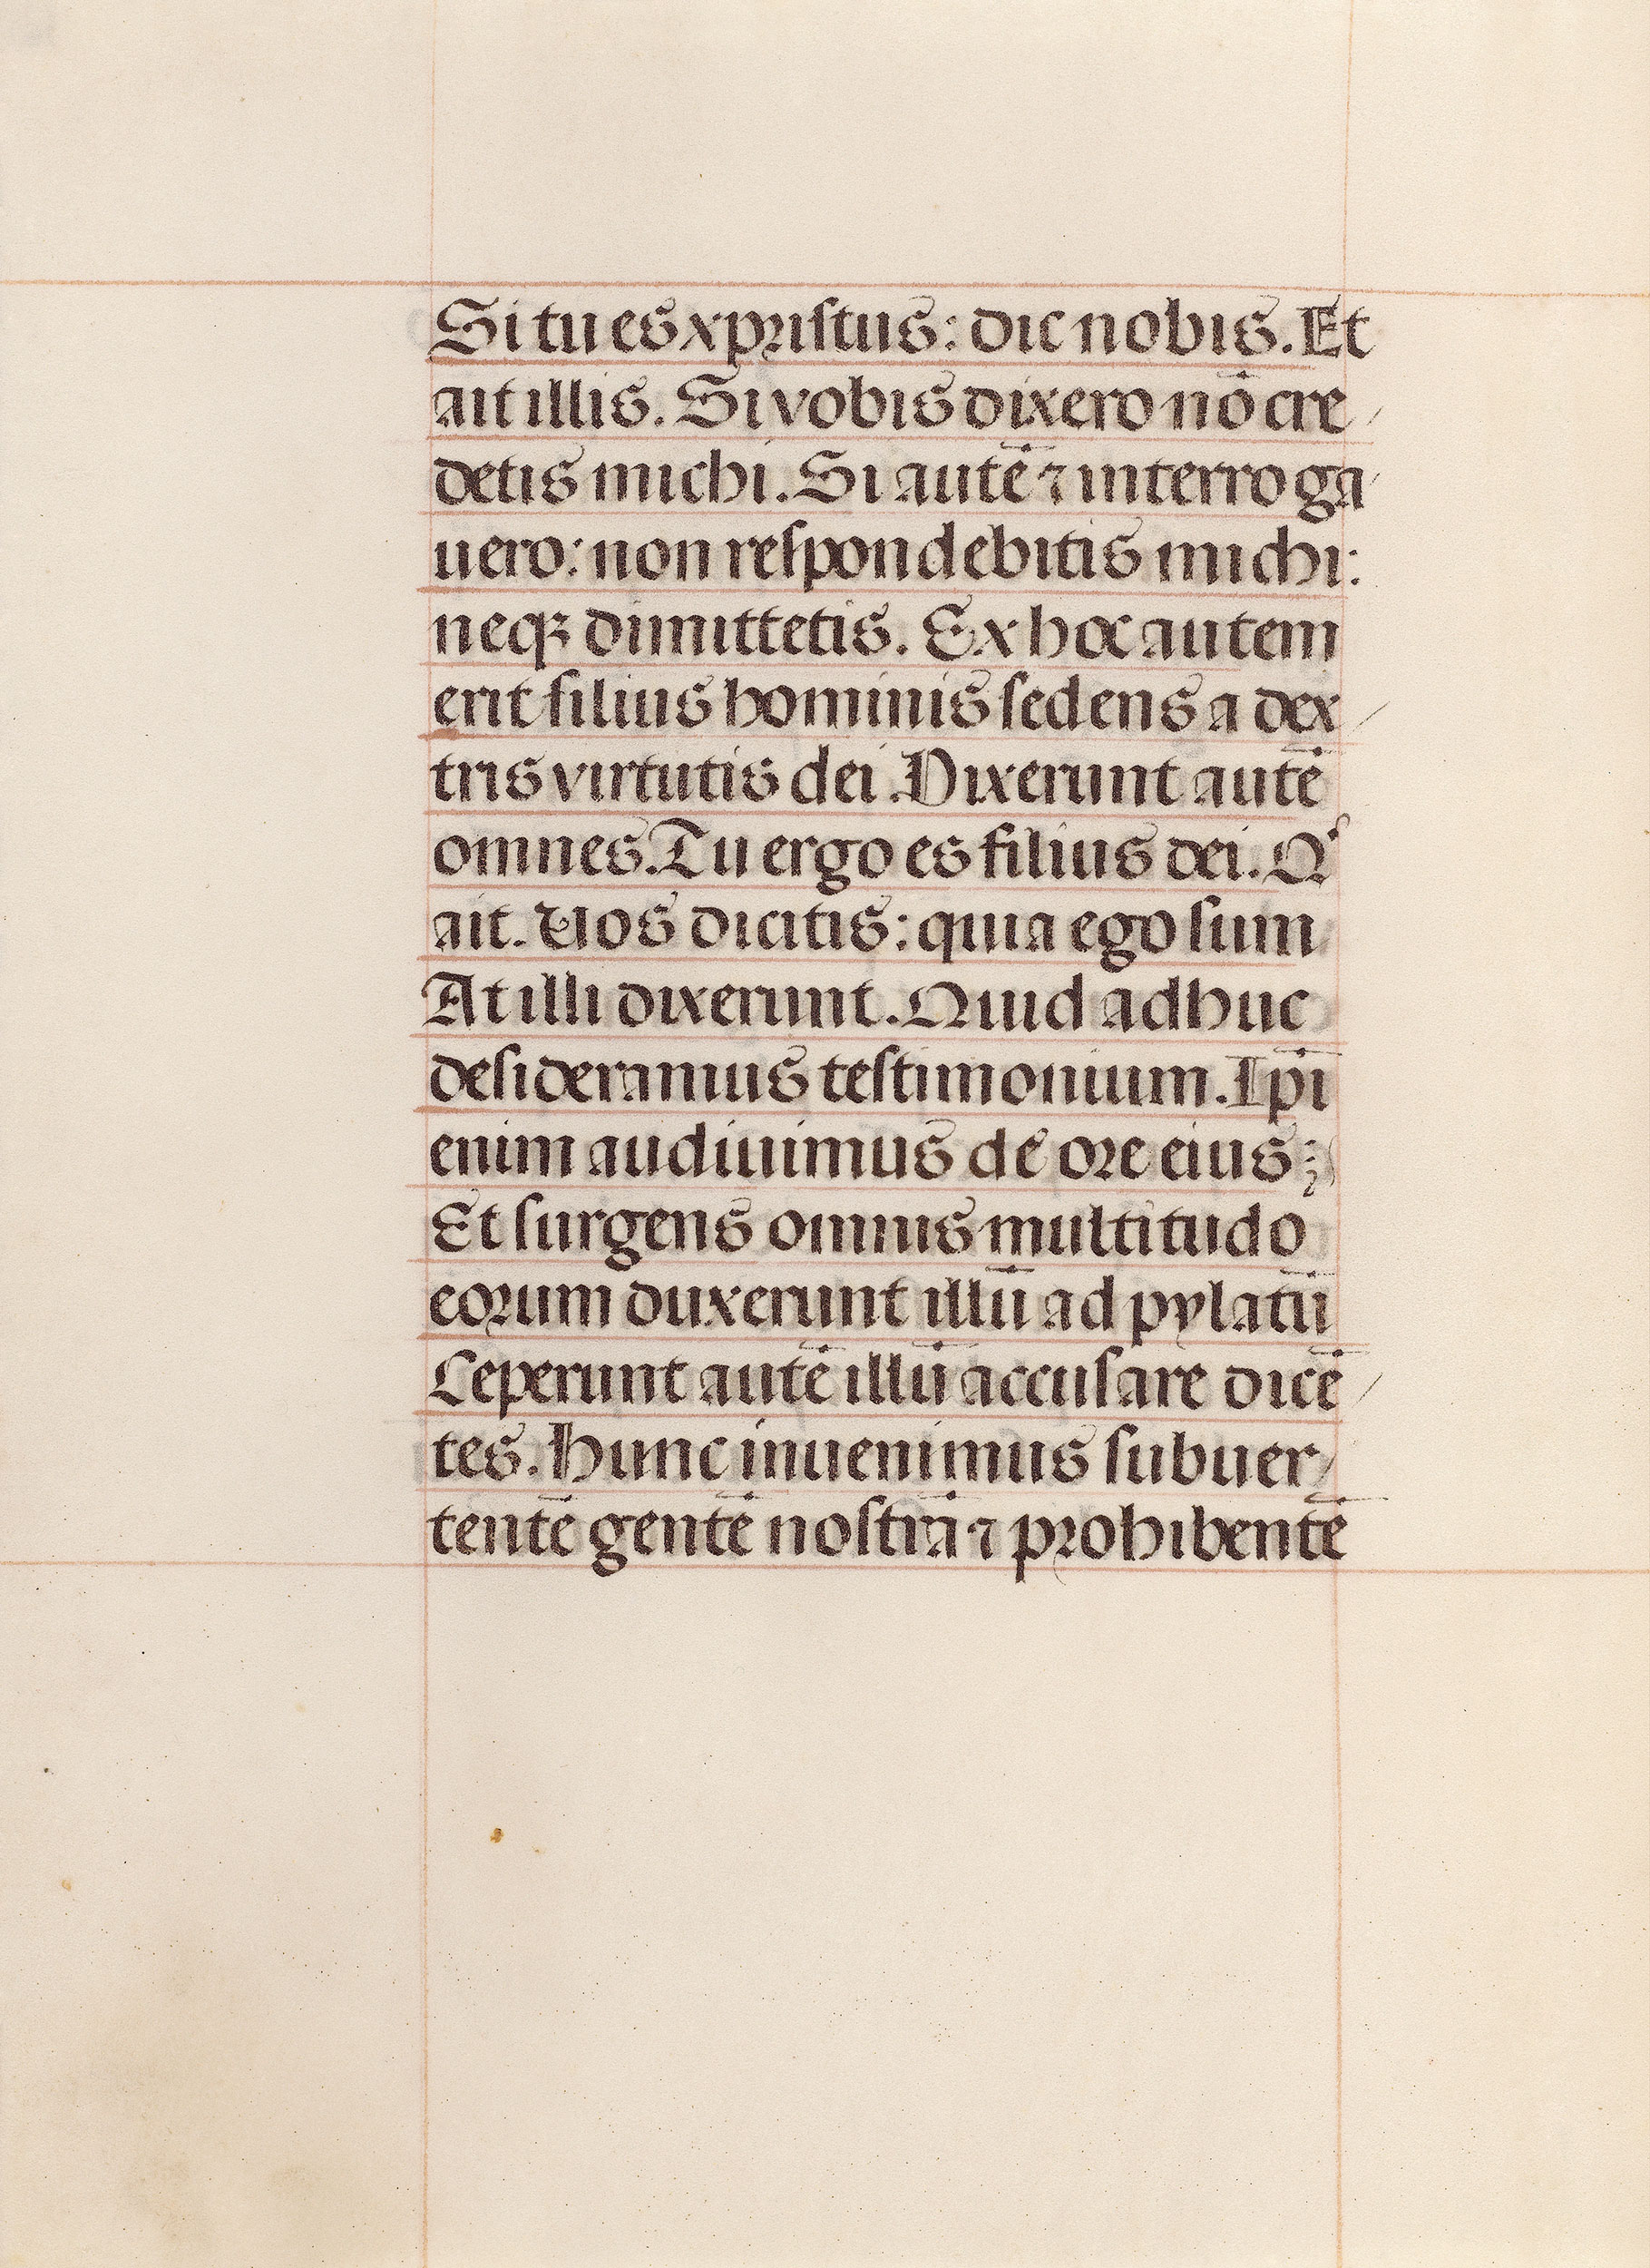 Si tu es xpristus: dic nobis. Et
ait illis. Si vobis dixero nō cre/
detis michi. Si autē ⁊ interroga/
uero: non respondebitis michi:
neqꝫ dimittetis. Ex hoc autem
erit filius hominis sedens a dex/
tris virtutis dei. Dixerunt autē
omnes. Tu ergo es filius dei. Qⁱ
ait. Uos dicitis: quia ego sum
At illi dixerunt. Quid adhuc
desideramus testimonium. Ip̄i
enim audiuimus de ore eius;
Et surgens omnis multitudo
eorum duxerunt illū ad pylatū
Ceperunt autē illū accusare dicē/
tes. Hunc inuenimus subuer/
tentē gentē nostrā ⁊ prohibentē